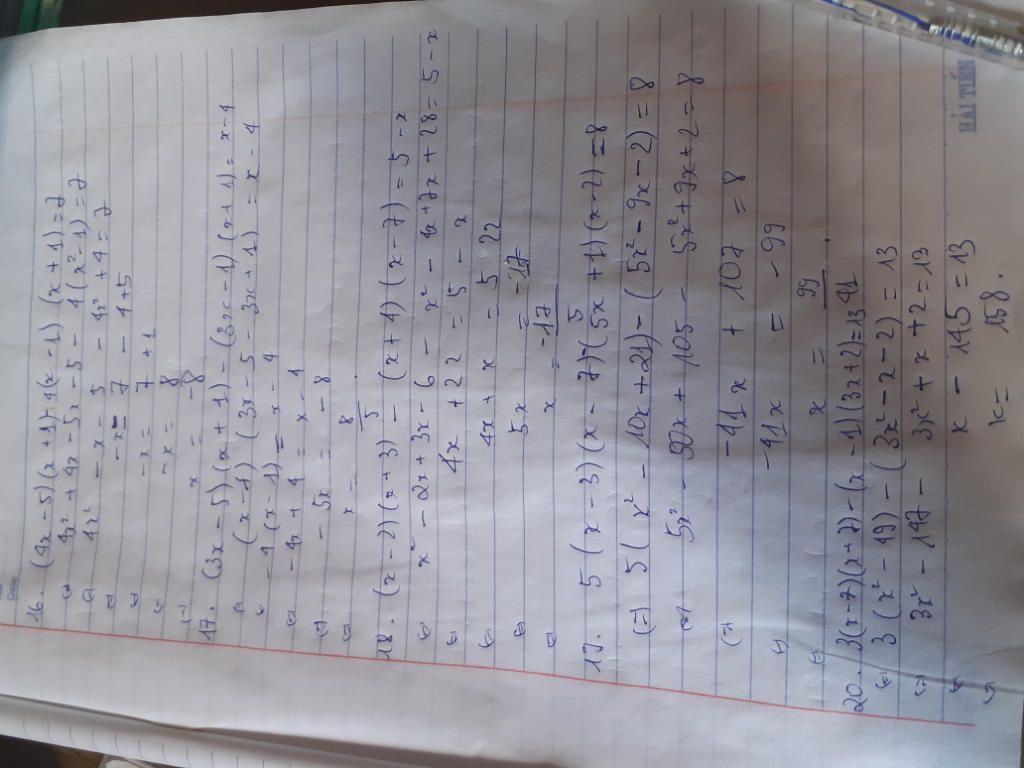 16. (4x-5)(x+1)-4(x-1)(x+1)=7
(=) 4x² + 4x - 5x - 5 - 4(x²-1)=7
(=) 4x² - x - 5 - 4x² + 4 = 7
(=) -x = 7 - 4+5
(=) -x = 7+1
(=) -x = 8
(=) x = -8
17. (3x-5)(x+1) - (3x-1)(x+1) = x-4
(=) (x-1)(3x-5-3x+1) = x-4
(=) -4(x-1) = x-4
(=) -4x+4 = x-4
(=) -5x = -8
(=) x = 8/5
18. (x-2)(x+3) - (x+4)(x-7) = 5-x
(=) x² - 2x + 3x - 6 - x² - 4x + 7x + 28 = 5-x
(=) 4x + 22 = 5-x
(=) 4x + x = 5-22
(=) 5x = -17
(=) x = -17/5
19. 5(x-3)(x-7)-(5x+1)(x-2)=8
(=) 5(x²-10x+21)-(5x²-9x-2)=8
(=) 5x²-50x+105-5x²+9x+2=8
(=) -41x + 107 = 8
(=) -41x = -99
(=) x = 99/41
20. 3(x-7)(x+7)-(x-1)(3x+2)=13
(=) 3(x²-49)-(3x²-2-2)=13
(=) 3x²-147-3x²+x+2=13
(=) x-145=13
(=) x = 158.
HẢI TIẾN